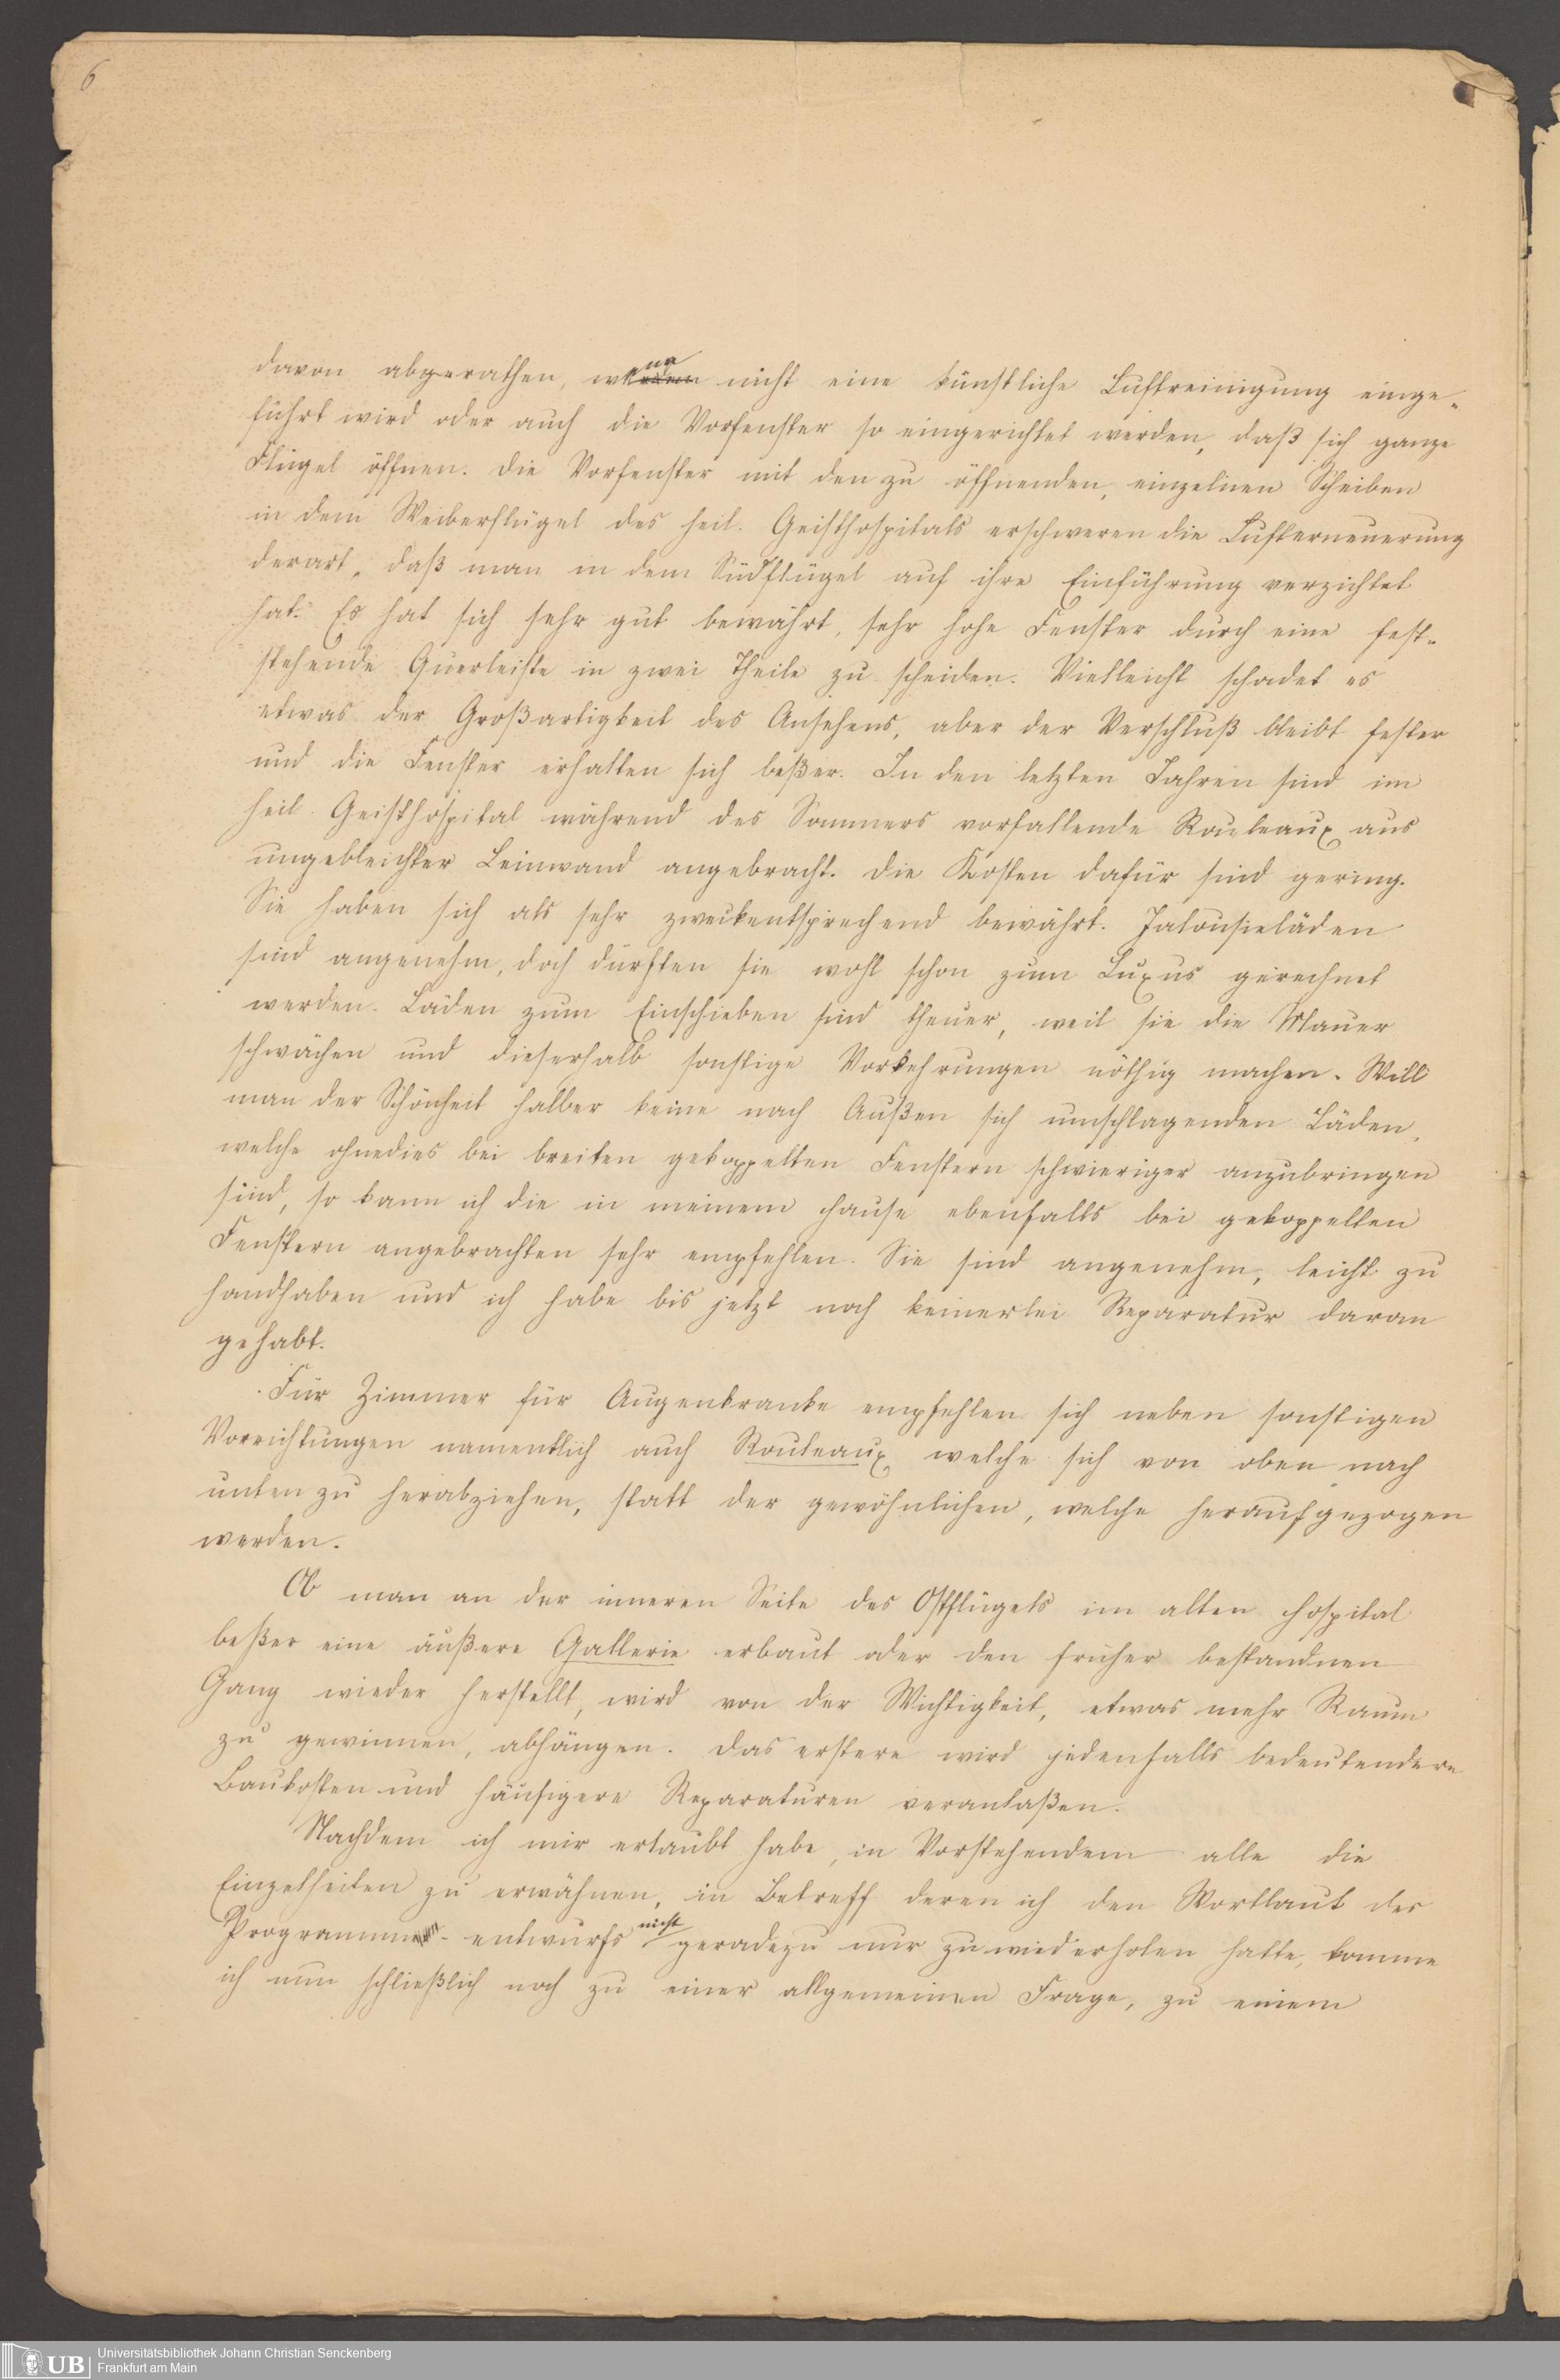 6
davon abgerathen, wenn nicht eine künstliche Luftreinigung einge-
führt wird oder auch die Vorfenster so eingerichtet werden, daß sich ganze
Flügel öffnen. Die Vorfenster mit den zu öffnenden, einzelnen Scheiben
in dem Weiberflügel des heil. Geisthospitals erschweren die Lufterneuerung
derart, daß man in dem Südflügel auf ihre Einführung verzichtet
hat. Es hat sich sehr gut bewährt, sehr hohe Fenster durch eine fest-
stehende Querleiste in zwei Theile zu scheiden. Vielleicht schadet es
etwas der Großartigkeit des Ansehens, aber der Verschluß bleibt fester
und die Fenster erhalten sich beßer. In den letzten Jahren sind im
heil. Geisthospital während des Sommers vorfallende Rouleaux aus
ungebleichter Leinwand angebracht. Die Kosten dafür sind gering.
Sie haben sich als sehr zweckentsprechend bewährt. Jalousieläden
sind angenehm, doch dürften sie wohl schon zum Luxus gerechnet
werden. Läden zum Einschieben sind theuer, weil sie die Mauer
schwächen und dieserhalb sonstige Vorkehrungen nöthig machen. Will
man der Schönheit halber keine nach Außen sich umschlagenden Läden,
welche ohnedies bei breiten gekoppelten Fenstern schwieriger anzubringen
sind, so kann ich die in meinem Hause ebenfalls bei gekoppelten
Fenstern angebrachten sehr empfehlen. Sie sind angenehm, leicht zu
handhaben und ich habe bis jetzt noch keinerlei Reparatur daran
gehabt.
Für Zimmer für Augenkranke empfehlen sich neben sonstigen
Vorrichtungen namentlich auch Rouleaux, welche sich von oben nach
unten zu herabziehen, statt der gewöhnlichen, welche heraufgezogen
werden.
Ob man an der inneren Seite des Ostflügels im alten Hospital
beßer eine äußere Gallerie erbaut oder den früher bestandnen
Gang wieder herstellt, wird von der Wichtigkeit, etwas mehr Raum
zu gewinnen, abhängen. Das erstere wird jedenfalls bedeutendere
Baukosten und häufigere Reparaturen veranlaßen.
Nachdem ich mir erlaubt habe, in Vorstehendem alle die
Einzelheiten zu erwähnen, in Betreff deren ich den Wortlaut des
Programm-entwurfs nicht geradezu nur zu wiederholen hatte, komme
ich nun schließlich noch zu einer allgemeinen Frage, zu einem
UB Universitätsbibliothek Johann Christian Senckenberg
Frankfurt am Main